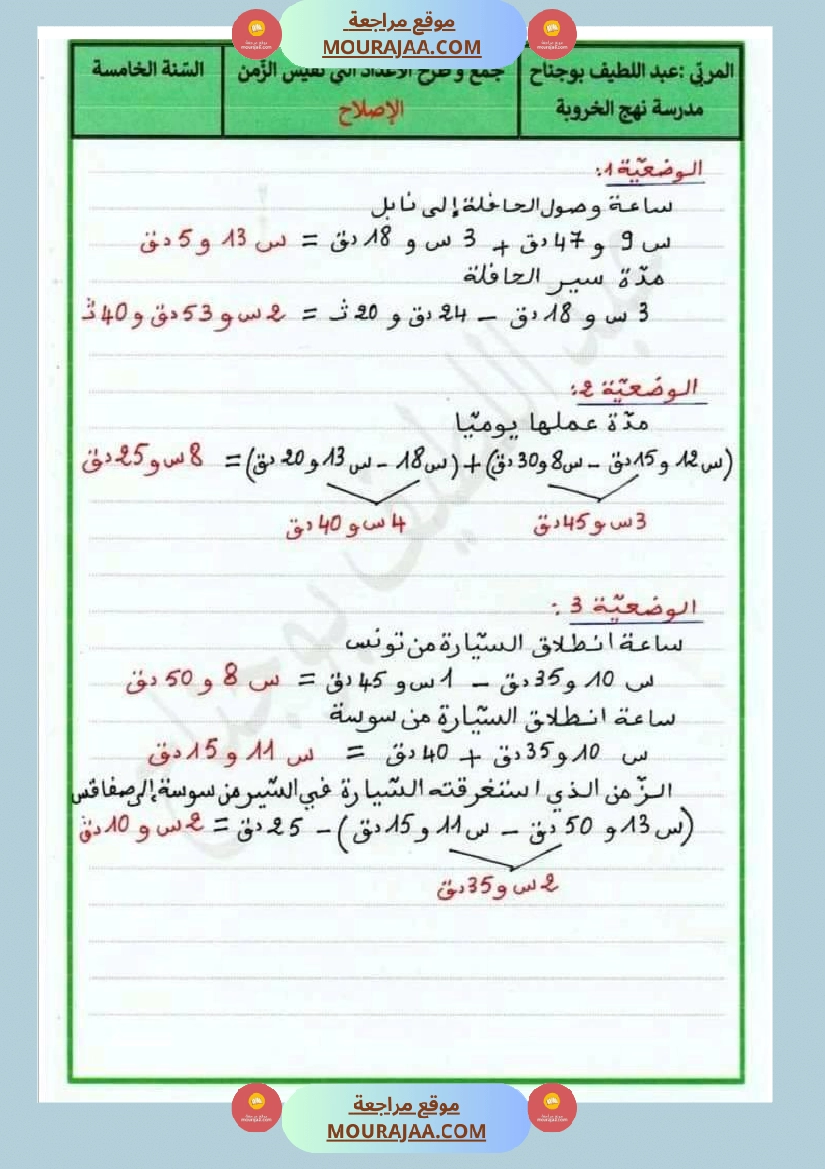 موقع مراجعة
MOURAJAA.COM
المربّي :عبد اللطيف بوجناح
مدرسة نهج الخروبة
جمع و طرح الأعداد التي تقيس الزّمن
الإصلاح
السّنة الخامسة
الوضعيّة 1:
ساعة وصول الحافلة إلى نابل
س 9 و 47 دق + 3 س و 18 دق = س 13 و 5 دق
مدّة سير الحافلة
3 س و 18 دق – 24 دق و 20 ث = 2 س و 53 دق و 40 ث
الوضعيّة 2:
مدّة عملها يوميّا
(س 12 و 15 دق – س 8 و 30 دق) + (س 18 – س 13 و 20 دق) = 8 س و 25 دق
3 س و 45 دق
4 س و 40 دق
الوضعيّة 3 :
ساعة انطلاق السيّارة من تونس
س 10 و 35 دق – 1 س و 45 دق = س 8 و 50 دق
ساعة انطلاق السيّارة من سوسة
س 10 و 35 دق + 40 دق = س 11 و 15 دق
الزّمن الذي استغرقته السيّارة في السّير من سوسة إلى صفاقس
(س 13 و 50 دق – س 11 و 15 دق) – 25 دق = 2 س و 10 دق
2 س و 35 دق
عبد اللطيف بوجناح
موقع مراجعة
MOURAJAA.COM